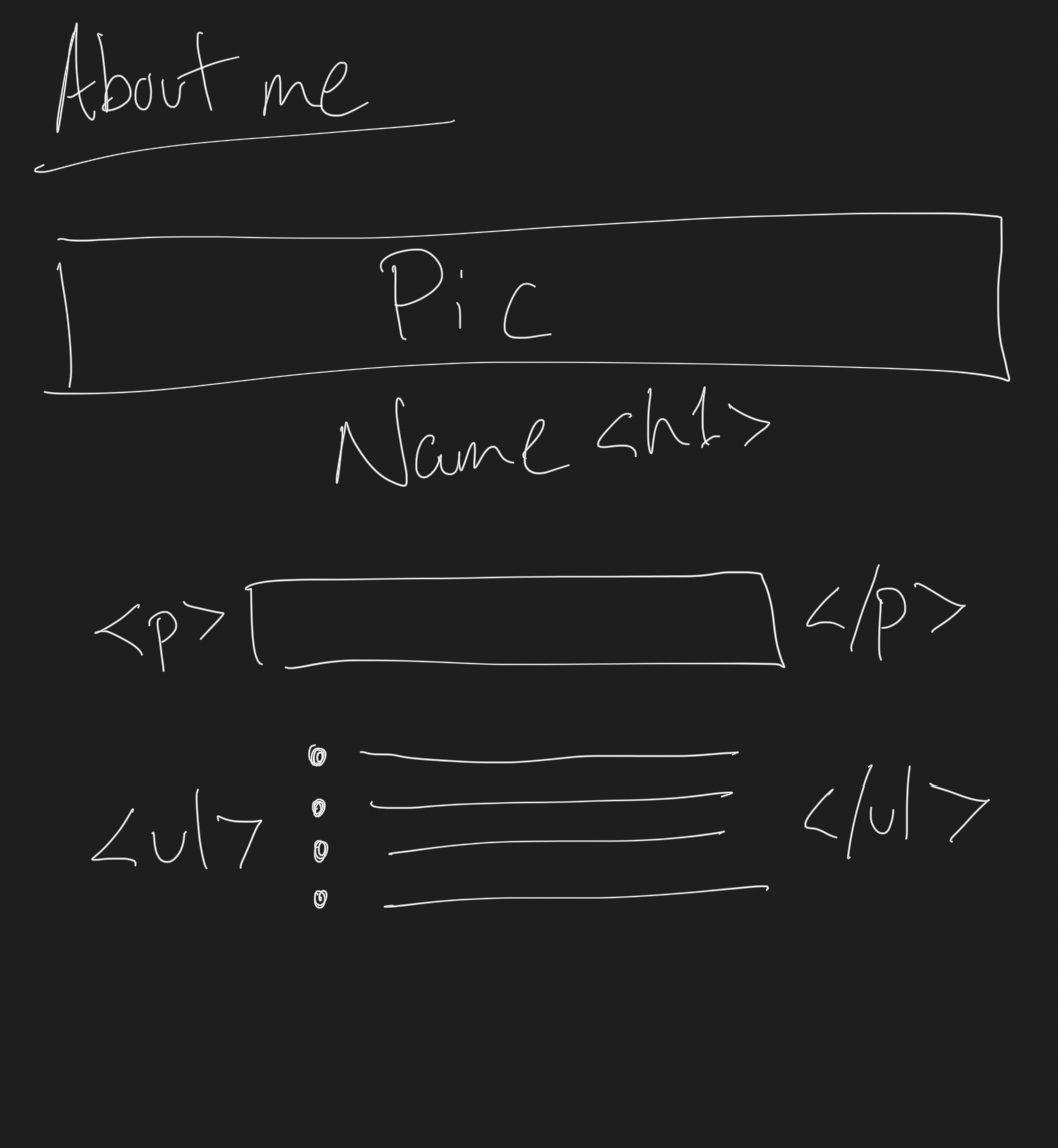 About me
Pic
Name <h1>
<p> </p>
<ul> </ul>